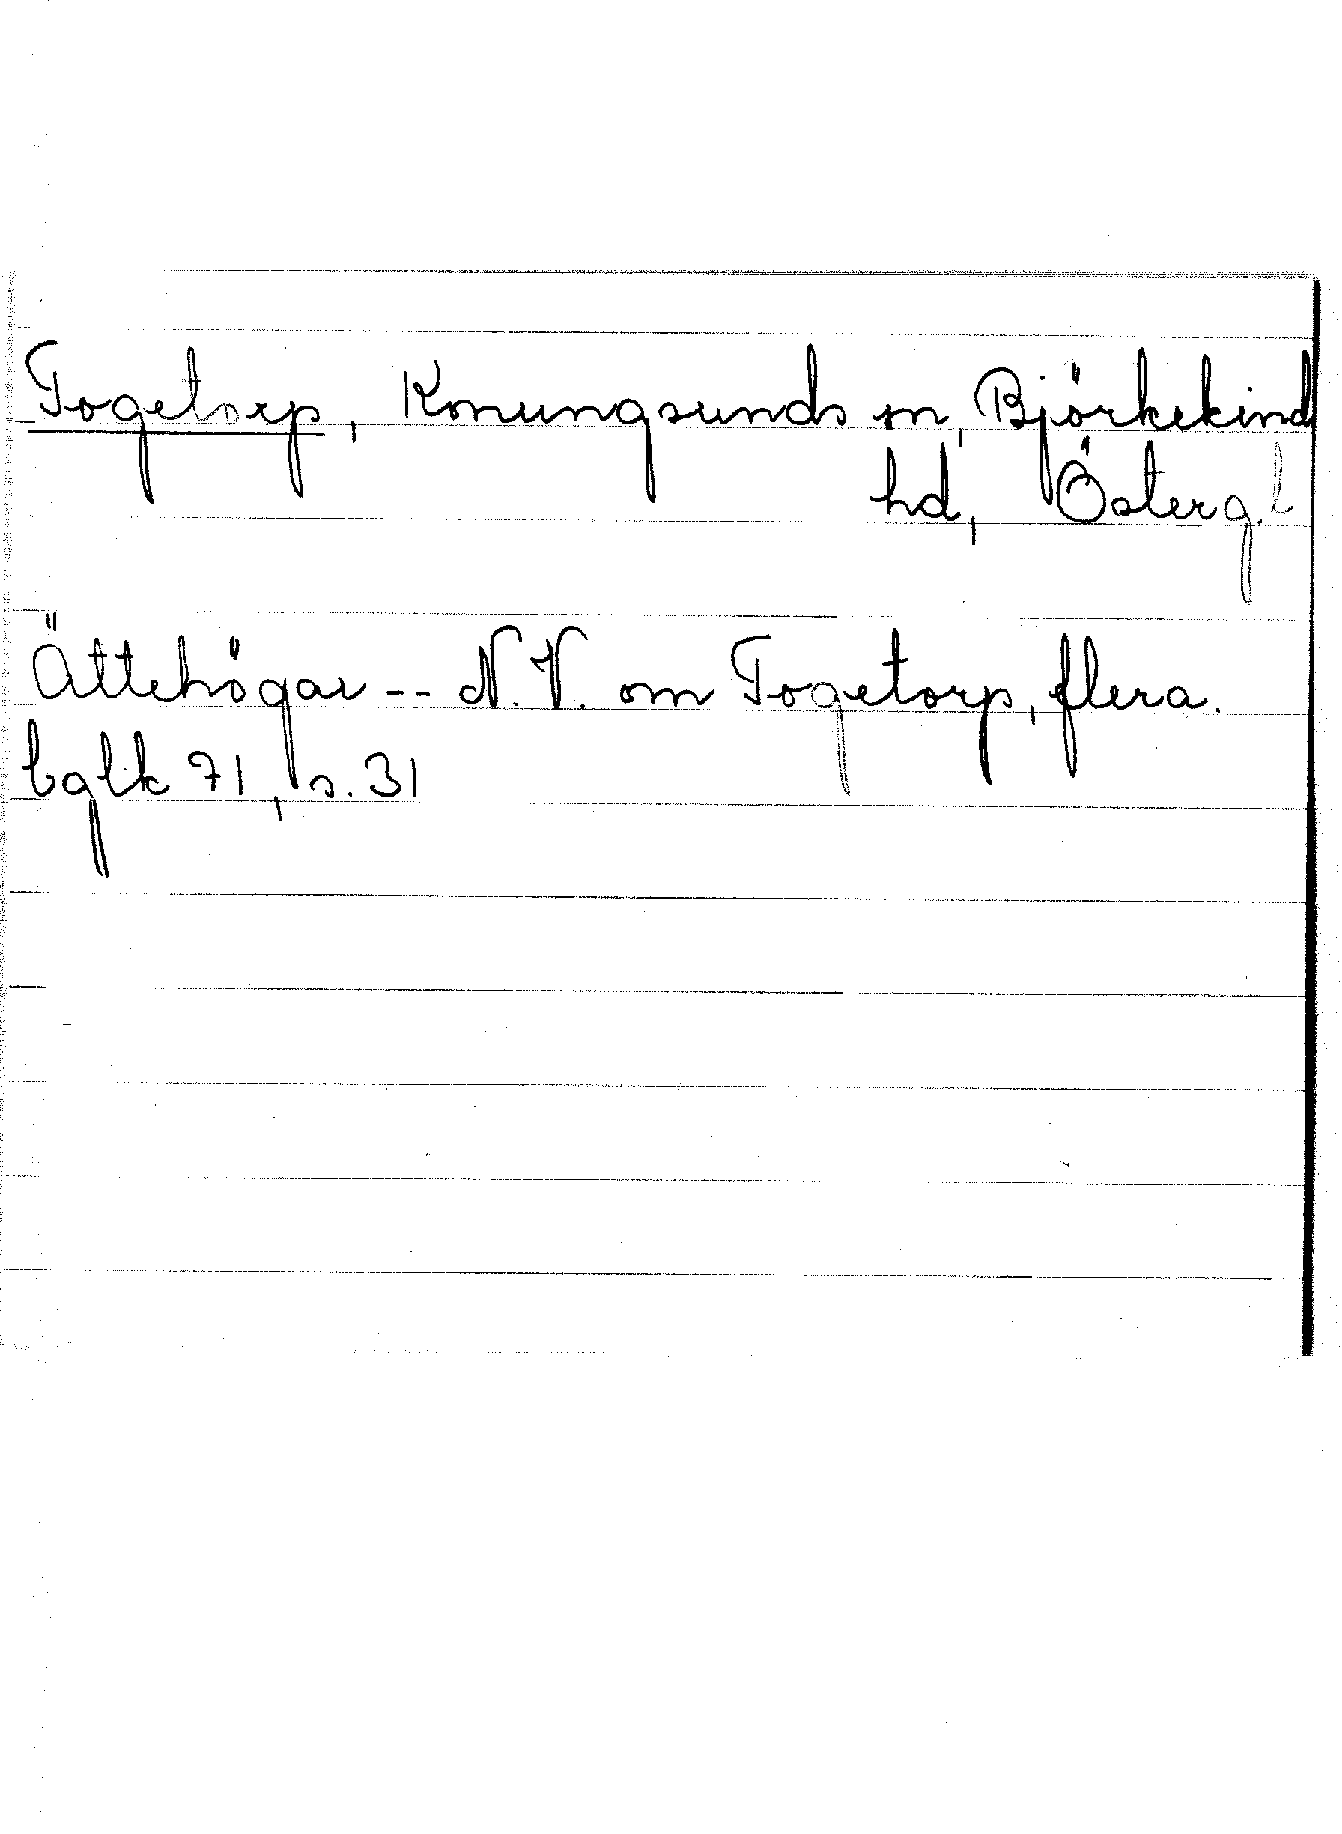 Togetorp, Konungsunds sn, Björkekind
hd, Österg.l
Ättehögar -- N.V. om Togetorp, flera.
bglk 71, s. 31